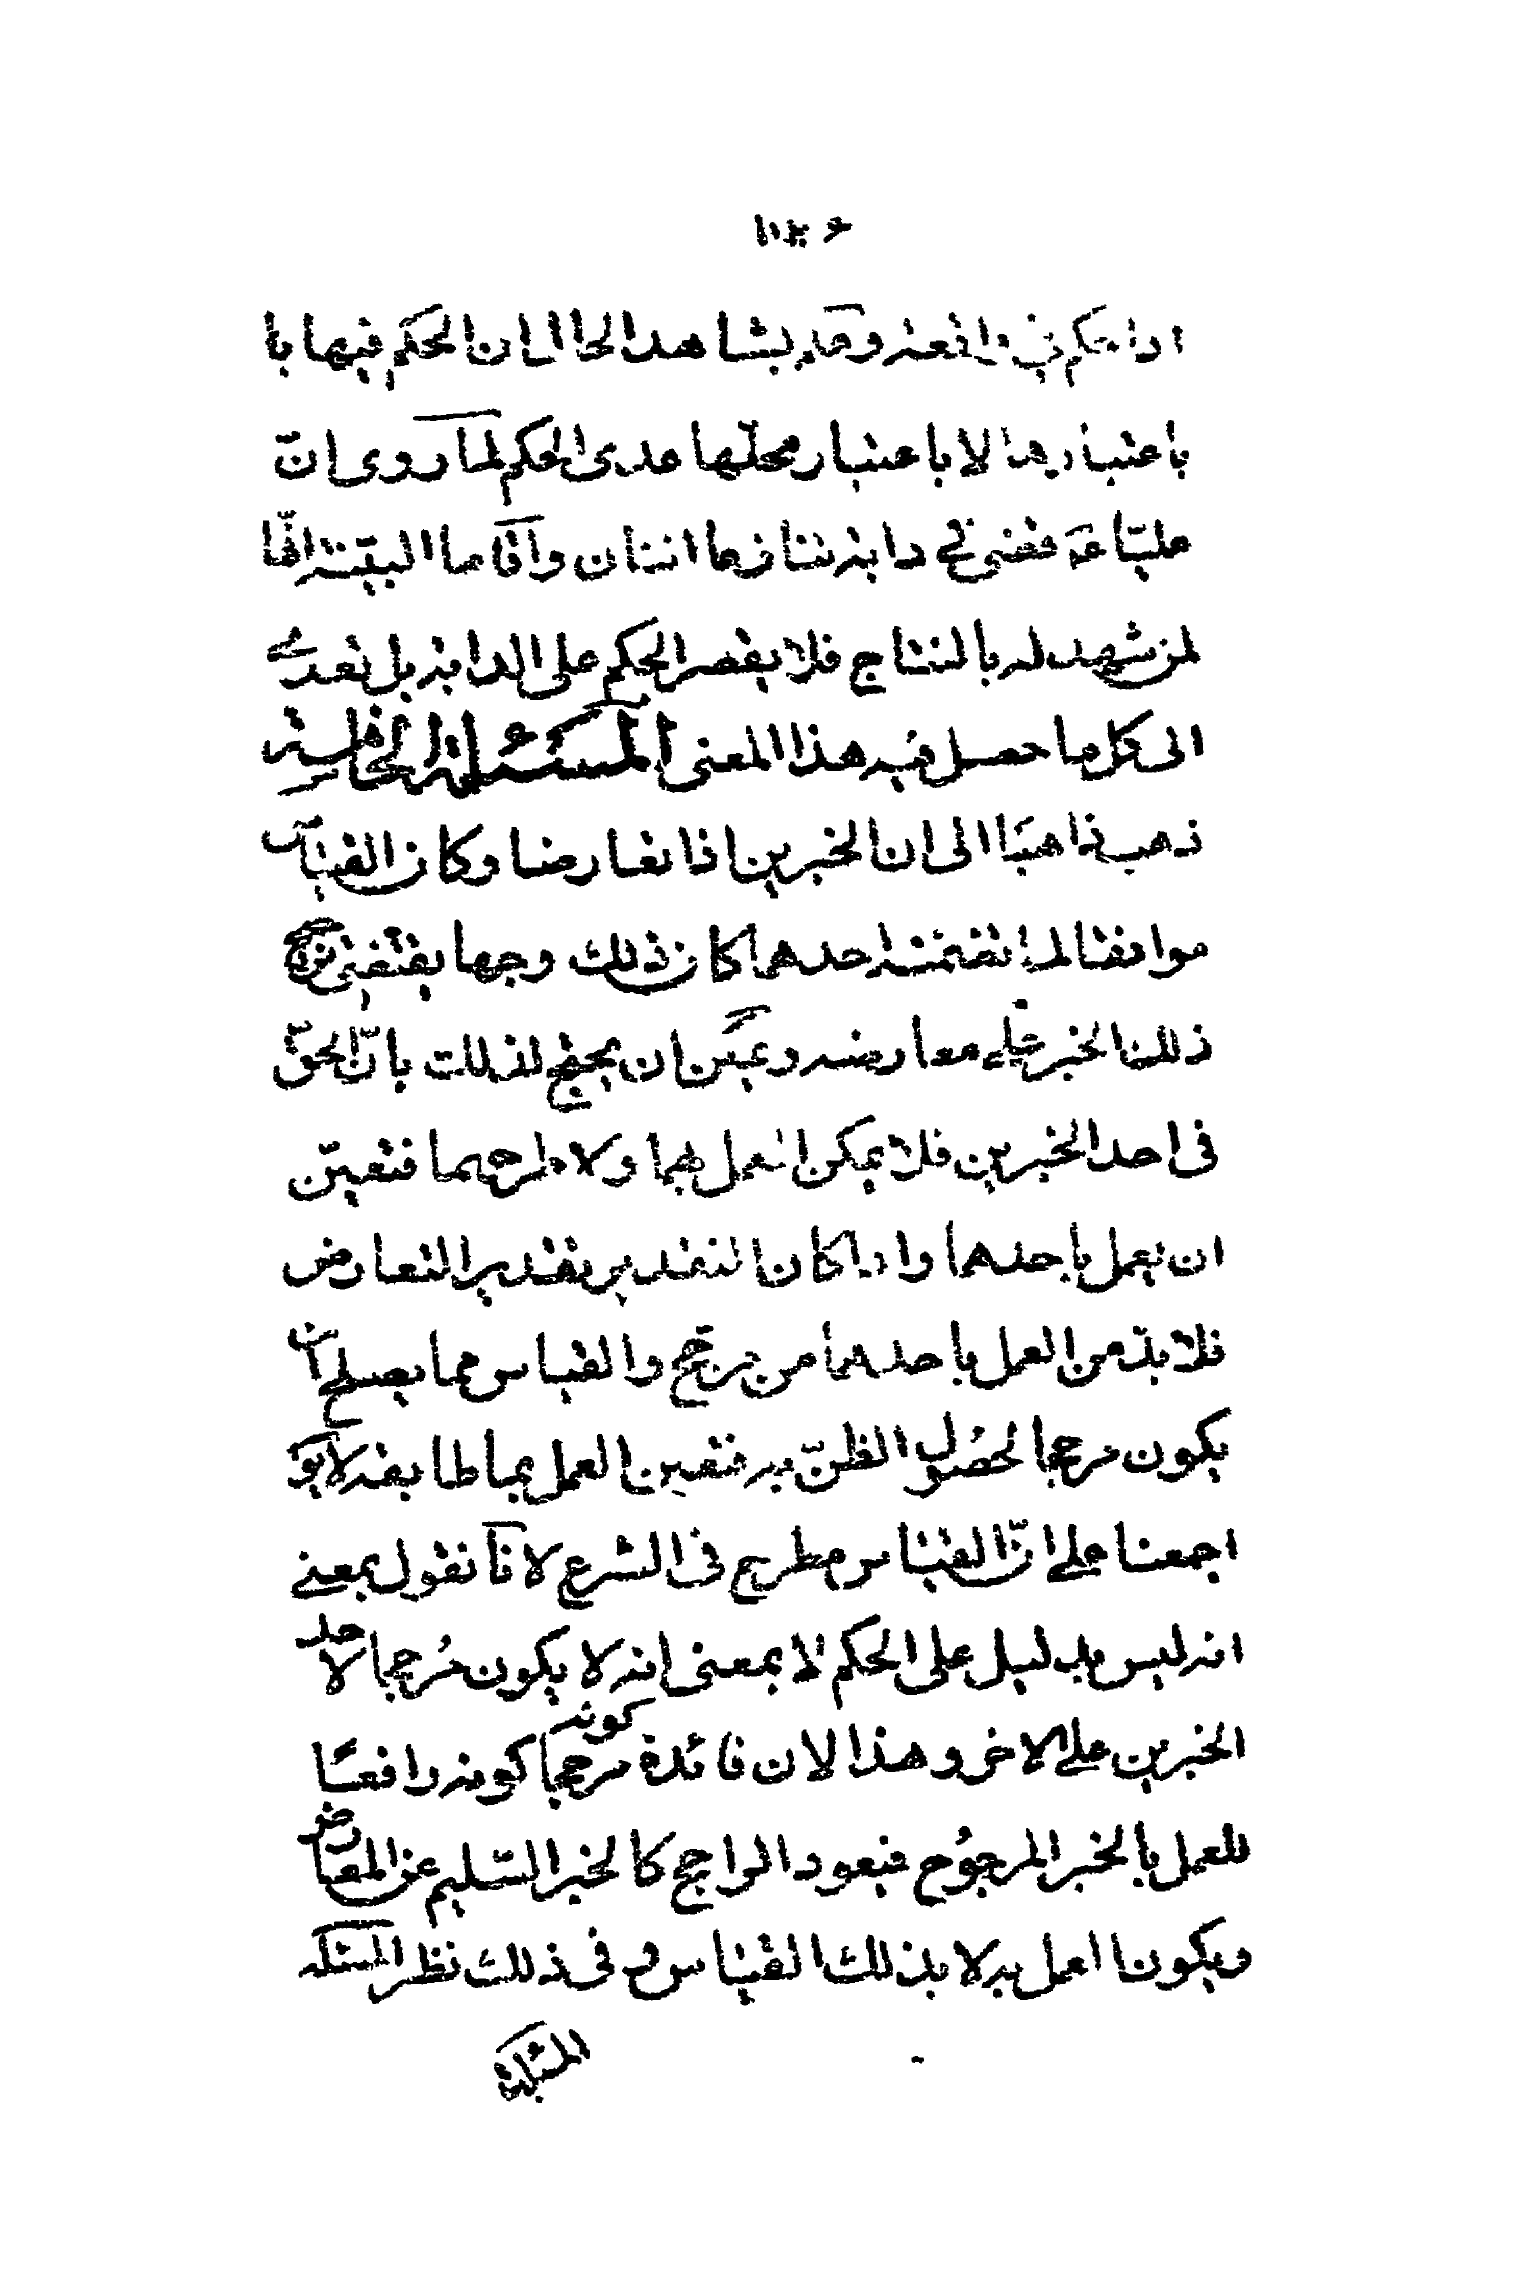 اذا حكم في واقعة وقد يشاهد الحال ان الحكم فيها با
باعتبارها لا باعتبار محلّها عدى الحكم لما روى انّ
عليّا ع قضى في دابة تنازعها اثنان واقاما البيّنة انّها
لمن شهد له بالنتاج فلا يقصر الحكم على الدابة بل تعدى
الى كل ما حصل فيه هذا المعنى المسئلة الخامسة
ذهب ذاهبٌ الى ان الخبرين اذا تعارضا وكان القياس
موافقا لما تضمّنه احدهما كان ذلك وجها يقتضى ترجيح
ذلك الخبر على معارضه ويمكن ان يحتج لذلك بانّ الحقّ
فى احد الخبرين فلا يمكن العمل بهما ولا طرحهما فتعيّن
ان يعمل باحدهما واذا كان التقدير تقدير التعارض
فلا بدّ من العمل باحدهما من مرجّح والقياس مما يصلح ان
يكون مرجحا لحصول الظنّ به فتعين العمل بما طابقه لا يق
اجمعنا على انّ القياس مطرح فى الشرع لانّا نقول بمعنى
انه ليس بدليل على الحكم لا بمعنى انه لا يكون مُرجحا لاحد
الخبرين على الاخر وهذا لان فائدة كونه مرجحا كونه رافعًا
للعمل بالخبر المرجوُح فيعود الراجح كالخبر السّليم عن المعارض
ويكون العمل به لا بذلك القياس و فى ذلك نظر المسئلة
المسئلة